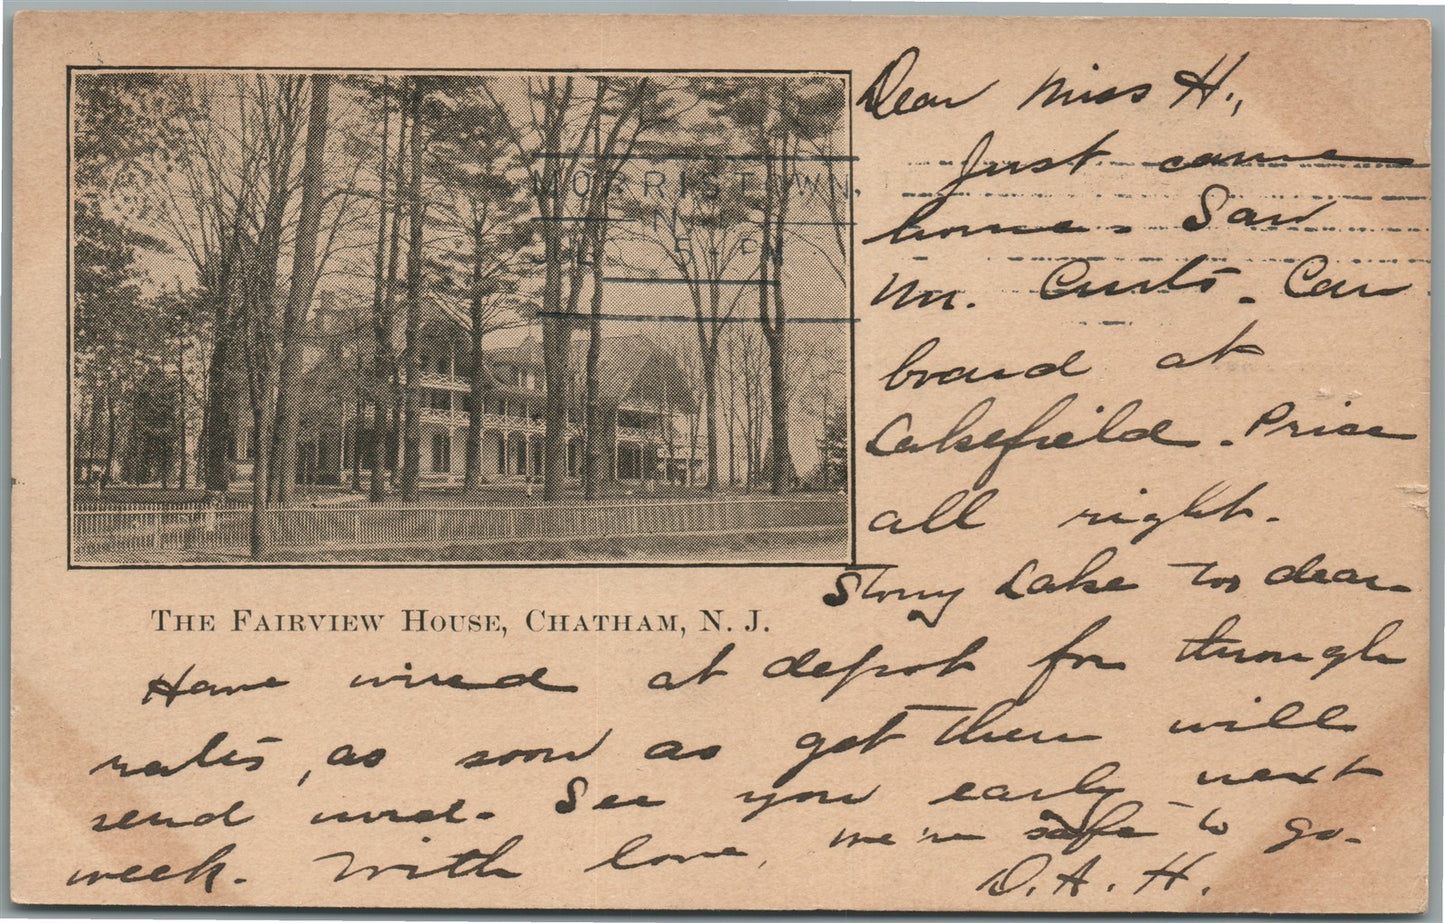 Dear Miss H.,
Just came
home. Saw
Mr. Curtis. Can
board at
Lakefield. Price
all right.
Stony Lake too dear.
Have wired at depot for through
rates, as soon as get them will
send word. See you early next
week. With love, we're safe to go.
D. A. H.
THE FAIRVIEW HOUSE, CHATHAM, N. J.
MORRISTOWN, N.J.
JUL 5 PM